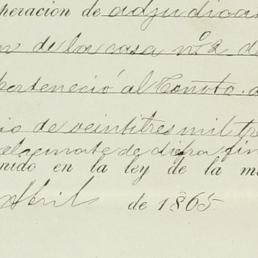 peracion de adjudica
de la casa nº 2 d
perteneció al Convto. d
io de veintitres mil tr
el remate de dicha fin
enido en la ley de la m
Abril de 1865